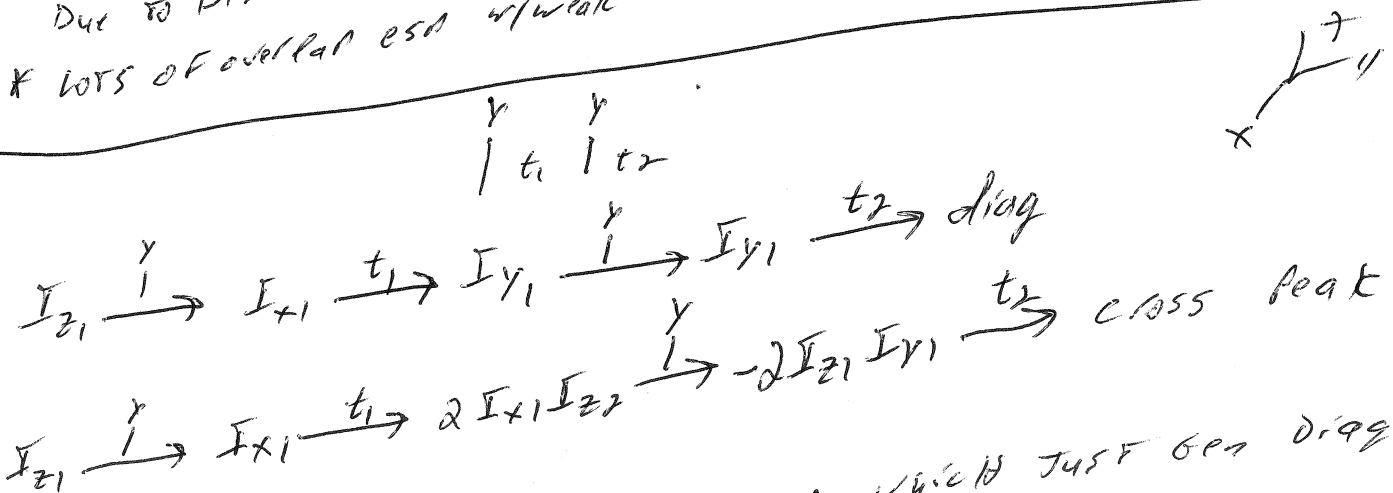 Due to
* LOTS OF overlap esp w/weak
z
y
x
Y Y
| t₁ | t₂
I_z₁ →(Y) I_x₁ →(t₁) I_y₁ →(Y) I_y₁ →(t₂) diag
I_z₁ →(Y) I_x₁ →(t₁) 2 I_x₁ I_z₂ →(Y) -2 I_z₁ I_y₁ →(t₂) cross peak
which JUST Gen Diag